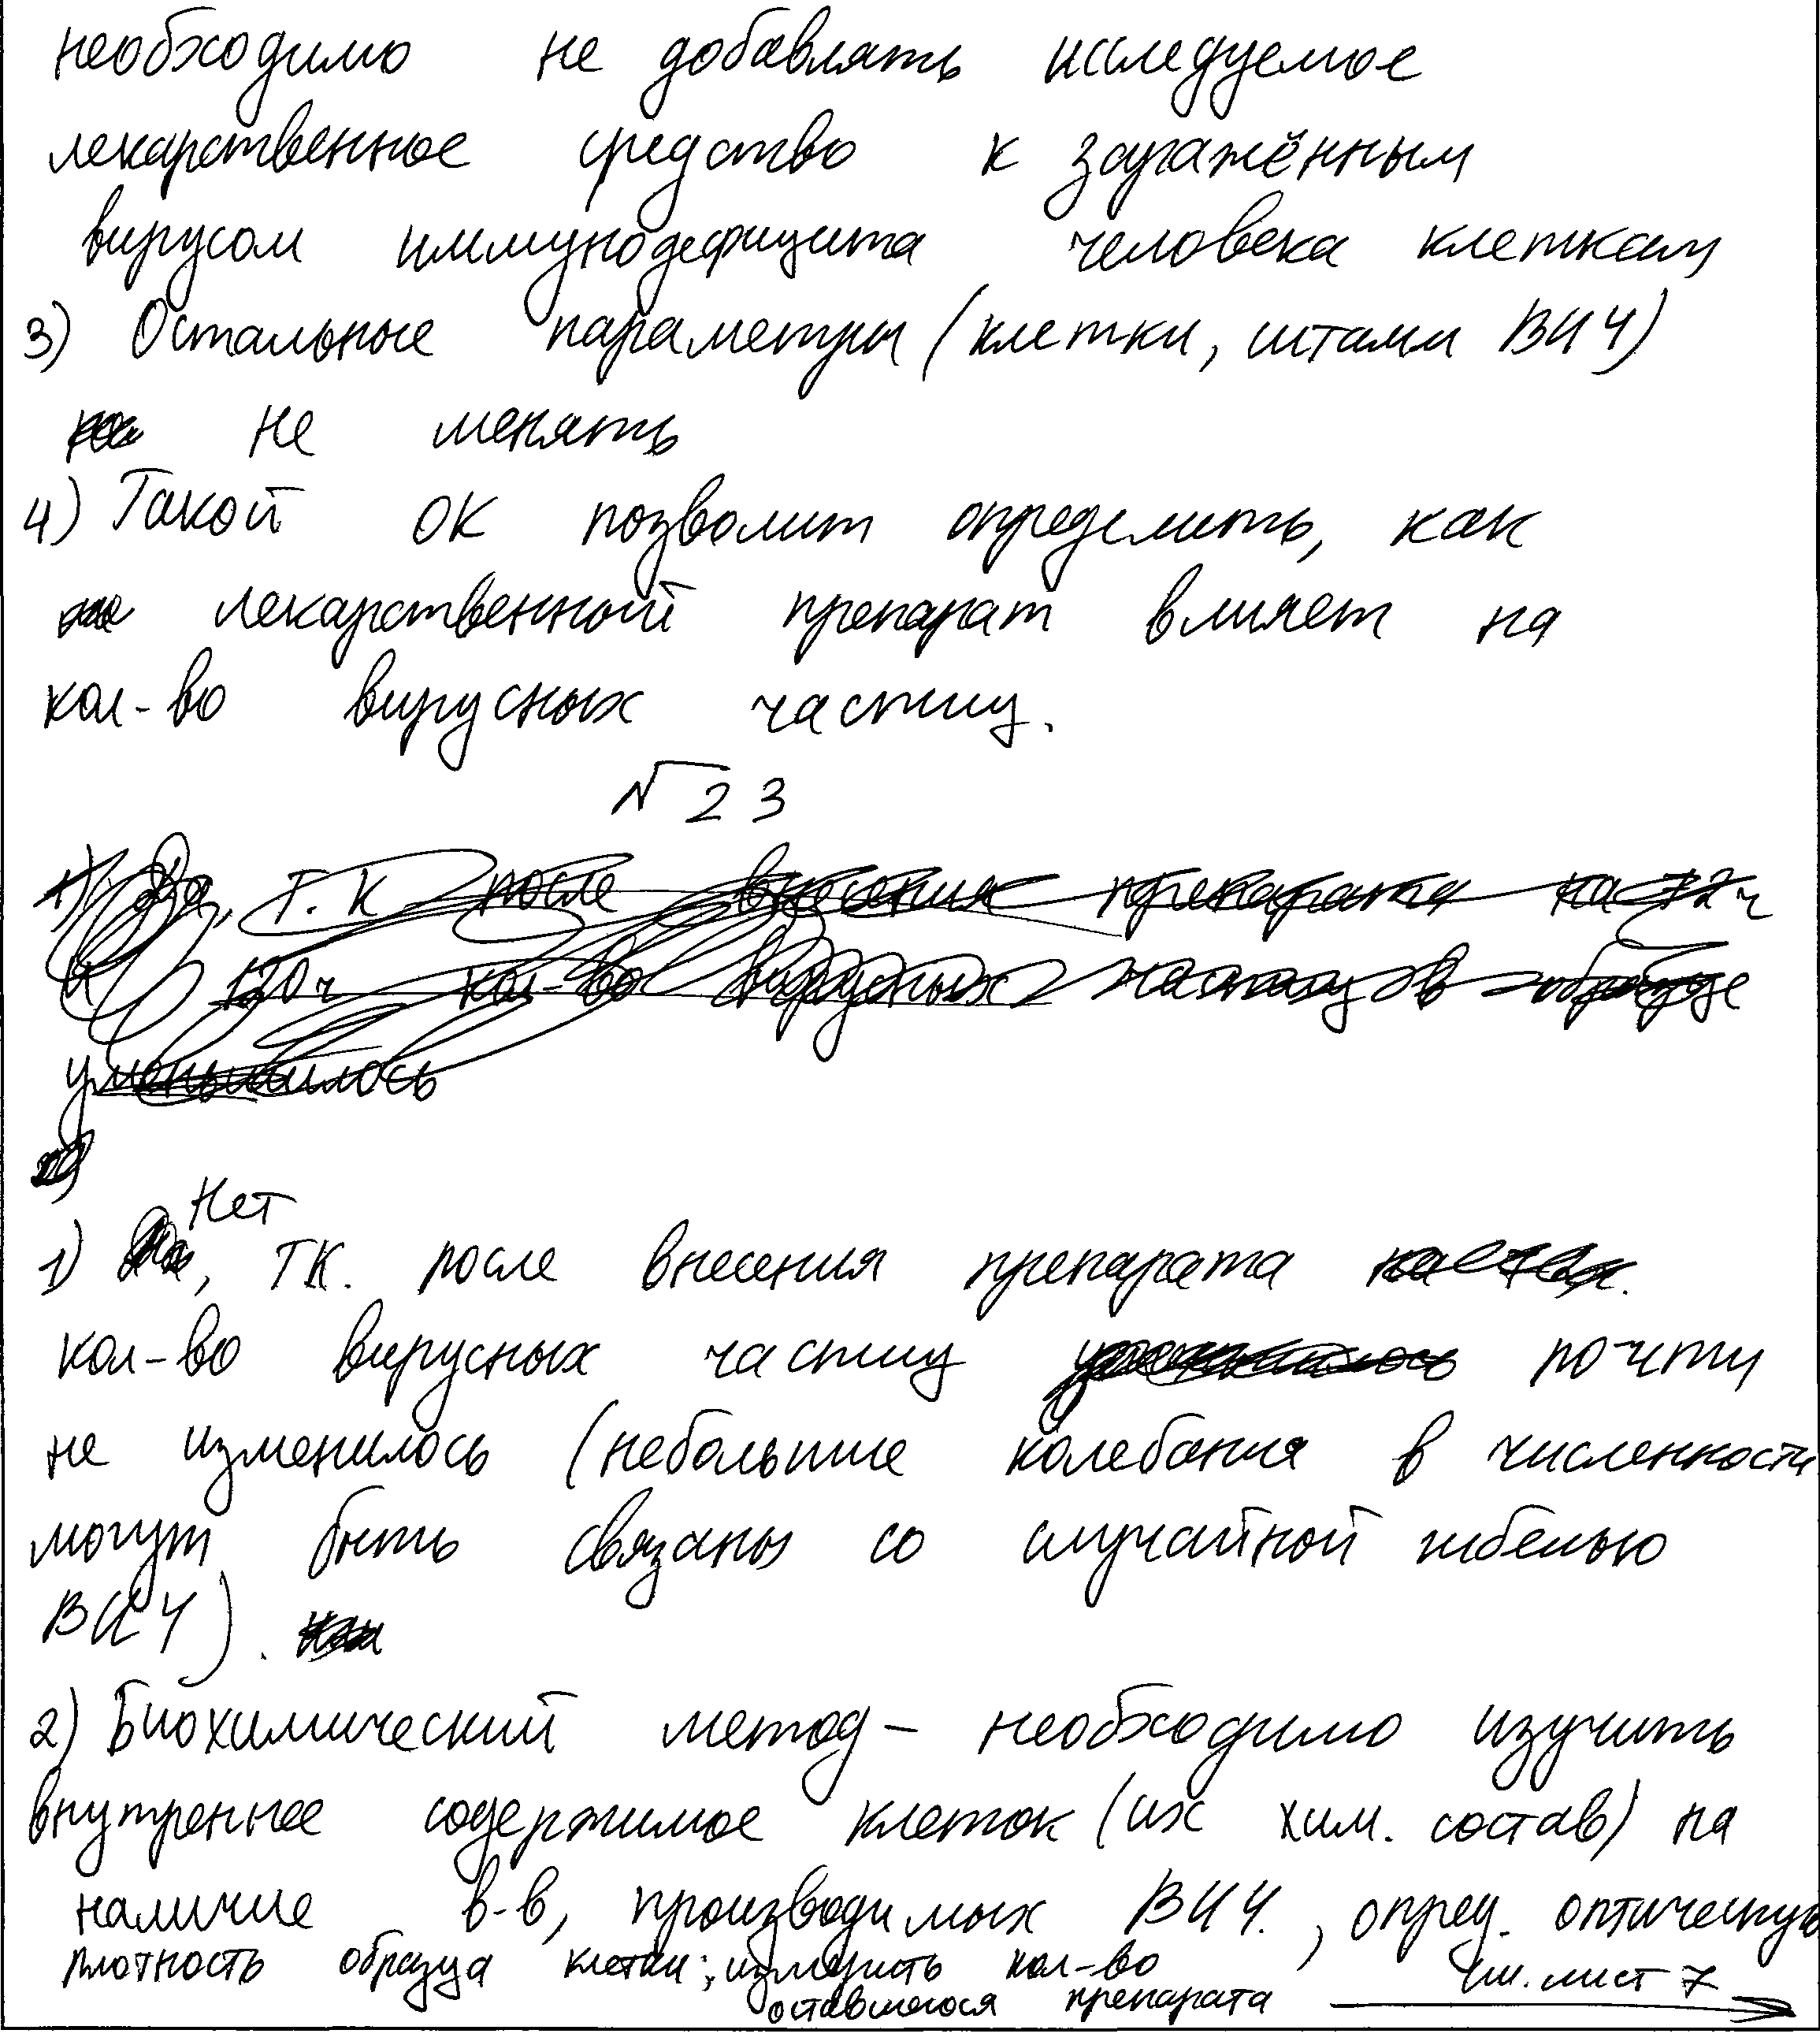 необходимо не добавлять исследуемое
лекарственное средство к заражённым
вирусом иммунодефицита человека клеткам
3) Остальные параметры (клетки, штамм ВИЧ)
не менять
4) Такой ОК позволит определить, как
лекарственный препарат влияет на
кол-во вирусных частиц.
№23
1) Да, т.к после внесения препарата на 72ч
и 120ч кол-во вирусных частиц в образце
уменьшилось
Нет
1) , ТК. после внесения препарата
кол-во вирусных частиц уменьшилось почти
не изменилось (небольшие колебания в численности
могут быть связаны со случайной гибелью
ВИЧ).
2) Биохимический метод – необходимо изучить
внутреннее содержимое клеток (их хим. состав) на
наличие в-в, производимых ВИЧ. , опред. оптическую
плотность образца клетки; измерить кол-во
оставшегося препарата см. лист 7